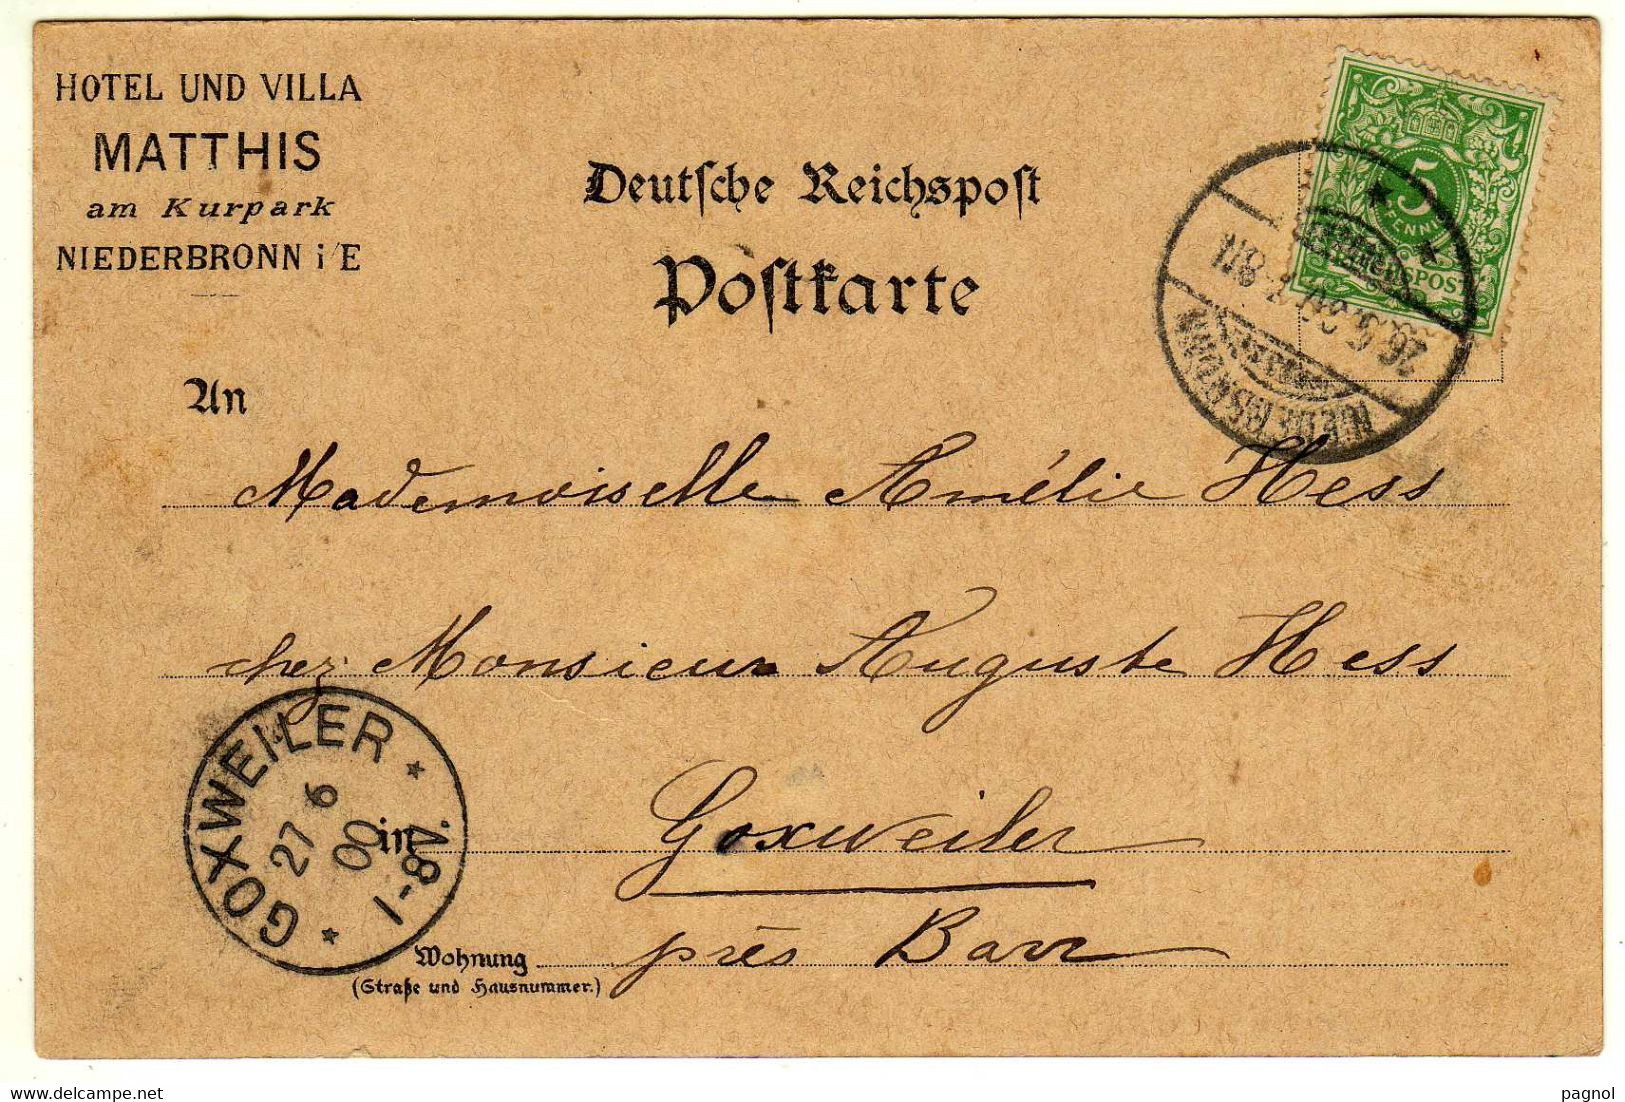 HOTEL UND VILLA
MATTHIS
am Kurpark
NIEDERBRONN i/E
Deutſche Reichspoſt
Poſtkarte
5
PFENNIG
REICHSPOST
NIEDERBRONN
26.6.00.
An
Mademoiselle Amélie Hess
chez Monsieur Auguste Hess
in Goxweiler
GOXWEILER
27 6
00
1-8N.
près Barr
Wohnung
(Straße und Hausnummer.)
pagnol